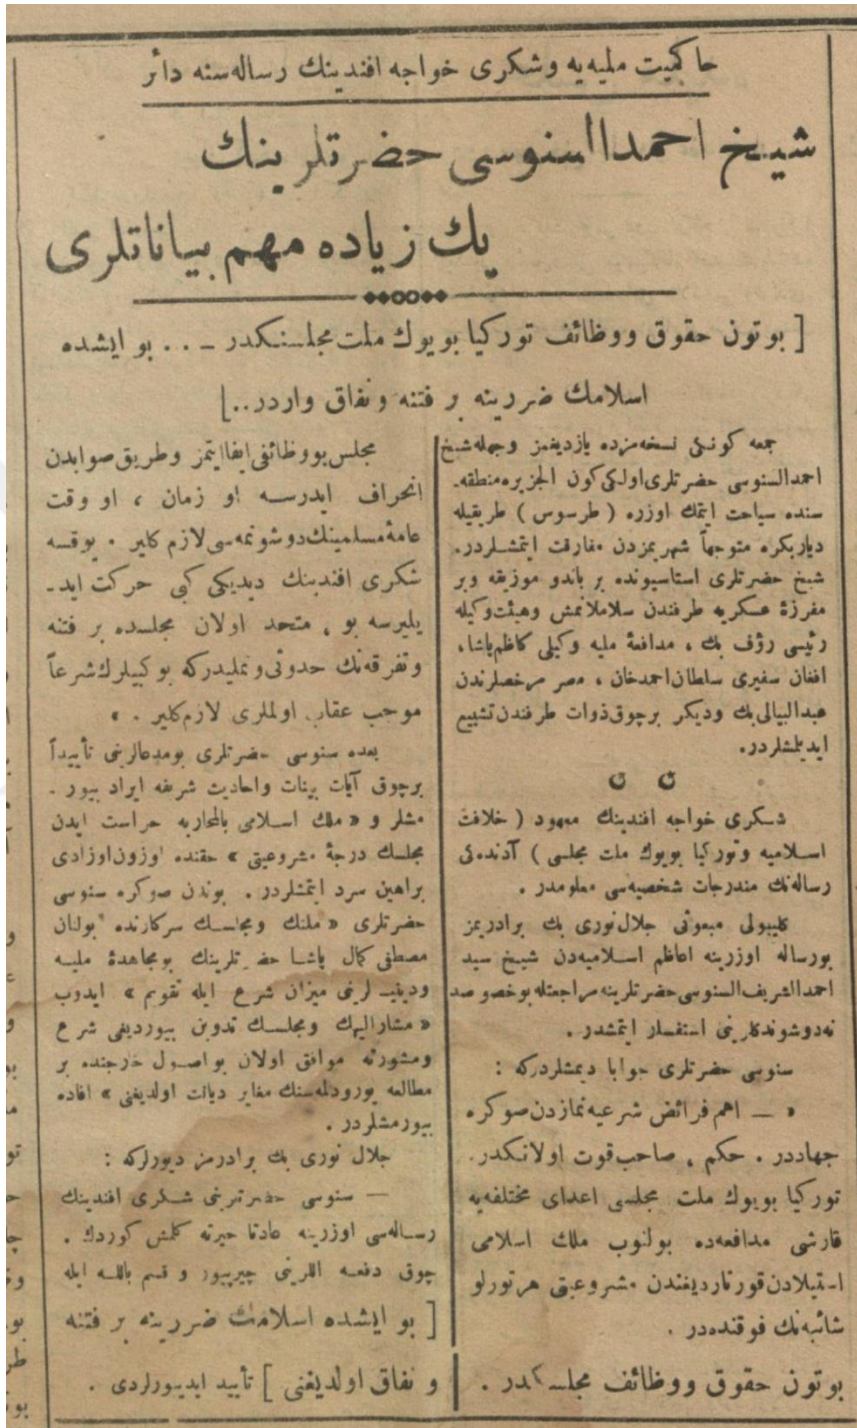 حاكميت مليه‌يه وشكرى خواجه افندينك رساله‌سنه دائر
شيخ احمدالسنوسى حضرتلرينك
پك زياده مهم بياناتلرى
[ بوتون حقوق ووظائف توركيا بويوك ملت مجلسنكدر ـ . . بو ايشده
اسلامك ضررينه بر فتنه ونفاق واردر..]
جمعه كونكى نسخه‌مزده يازديغمز وجهله شيخ
احمدالسنوسى حضرتلرى اولكى كون الجزيره منطقه‌ـ
سنده سياحت ايتمك اوزره ( طرسوس ) طريقيله
دياربكره متوجهاً شهريمزدن مفارقت ايتمشلردر.
شيخ حضرتلرى استاسيونده بر باندو موزيقه وبر
مفرزهٔ عسكريه طرفندن سلاملانمش وهيئت وكيله
رئيسى رؤف بك ، مدافعهٔ مليه وكيلى كاظم پاشا،
افغان سفيرى سلطان احمدخان ، مصر مرخصلرندن
عبدالبيالى بك وديكر برچوق ذوات طرفندن تشييع
ايديلمشلردر.
شكرى خواجه افندينك معهود ( خلافت
اسلاميه وتوركيا بويوك ملت مجلسى ) آدنده‌كى
رساله‌نك مندرجات شخصيه‌سى معلومدر .
كليبولى مبعوثى جلال نورى بك برادريمز
بورساله اوزرينه اعاظم اسلاميه‌دن شيخ سيد
احمدالشريف السنوسى حضرتلرينه مراجعتله بوخصوصد
نه‌دوشوندكلرينى استفسار ايتمشدر .
سنوسى حضرتلرى جوابا ديمشلردركه :
« ــ اهم فرائض شرعيه نمازدن صوكره
جهاددر . حكم ، صاحب قوت اولانكدر.
توركيا بويوك ملت مجلسى اعداى مختلفه‌يه
قارشى مدافعه‌ده بولنوب ملك اسلامى
استيلادن قورتارديغندن مشروعيتى هرتورلو
شائبه‌نك فوقنده‌در .
بوتون حقوق ووظائف مجلسكدر .
مجلس بووظائفى ايفا ايتمز وطريق صوابدن
انحراف ايدرسه او زمان ، او وقت
عامهٔ مسلمينك دوشونمه‌سى لازم كلير . يوقسه
شكرى افندينك ديديكى كبى حركت ايد‌ـ
يليرسه بو ، متحد اولان مجلسده بر فتنه
وتفرقه‌نك حدوثى ديمكدركه بوكبيلرك شرعاً
موجب عقاب اولملرى لازم كلير . »
بعده سنوسى حضرتلرى بومدعالرينى تأييداً
برچوق آيات بينات واحاديث شريفه ايراد بيور‌ـ
مشلر و « ملك اسلامى بالمحاربه حراست ايدن
مجلسك درجهٔ مشروعيتى » حقنده اوزون اوزادى
براهين سرد ايتمشلردر . بوندن صوكره سنوسى
حضرتلرى « ملتك ومجلسك سركارنده بولنان
مصطفى كمال پاشا حضرتلرينك بومجاهدهٔ مليه
ودينيه‌لرينى ميزان شرع ايله تقويم » ايدوب
« مشاراليهك ومجلسك تدوين بيورديغى شرع
ومشورته موافق اولان بواصول خارجنده بر
مطالعه يورودلمه‌سنك مغاير ديانت اولديغنى » افاده
بيورمشلردر .
جلال نورى بك برادرمز ديورلركه :
— سنوسى حضرتلرينى شكرى افندينك
رساله‌سى اوزرينه عادتا حيرته كلمش كوردك .
چوق دفعه اللرينى چيرپيور و قسم بالله ايله
[ بو ايشده اسلامك ضررينه بر فتنه
و نفاق اولديغنى ] تأييد ايديورلردى .